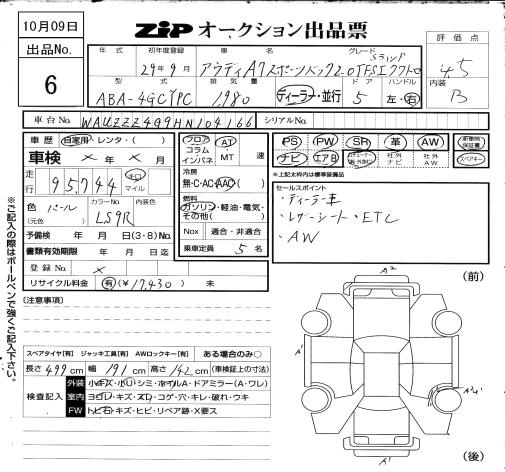 10月09日
ZIP オークション出品票
出品No.
6
年式 初年度登録 車名 グレード
29年9月 アウディA7スポーツバック2.0TFSIクワトロ
Sライン
評価点
4.5
内装
B
型式 排気量 ドア ハンドル
ABA-4GCYPC 1,980 ディーラー・並行 5 左・右
車台No. WAUZZZ4G9HN104166 シリアルNo.
車歴 自家用・レンタ・( )
車検 × 年 × 月
走行 95,744 キロ マイル
色 パール (元色) カラーNo. LS9R 内装色
予備検 年 月 日(3・8)No.
書類有効期限 年 月 日迄
登録No. ×
リサイクル料金 有(¥17,430) 未
フロア コラム インパネ AT MT 速
冷房
無・C・AC・AAC( )
燃料
ガソリン・軽油・電気・その他( )
Nox 適合・非適合
乗車定員 5 名
PS PW SR 革 AW 新車時保証書
ナビ エアB 社外ナビ 社外AW スペアキー
※上記太枠内は標準装備品
セールスポイント
・ディーラー車
・レザーシート・ETC
・AW
※ご記入の際はボールペンで強くご記入下さい。
[注意事項]
スペアタイヤ[有] ジャッキ工具[有] AWロックキー[有] ある場合のみ○
長さ 499cm 幅 191cm 高さ 142cm (車検証上の寸法)
検査記入
外装 小キズ・小凹・シミ・ホイルA・ドアミラー(A・ワレ)
室内 ヨゴレ・キズ・スレ・コゲ・穴・キレ・破れ・ウキ
FW トビ石・キズ・ヒビ・リペア跡・X要ス
(前)
A2
A1
A1
(後)